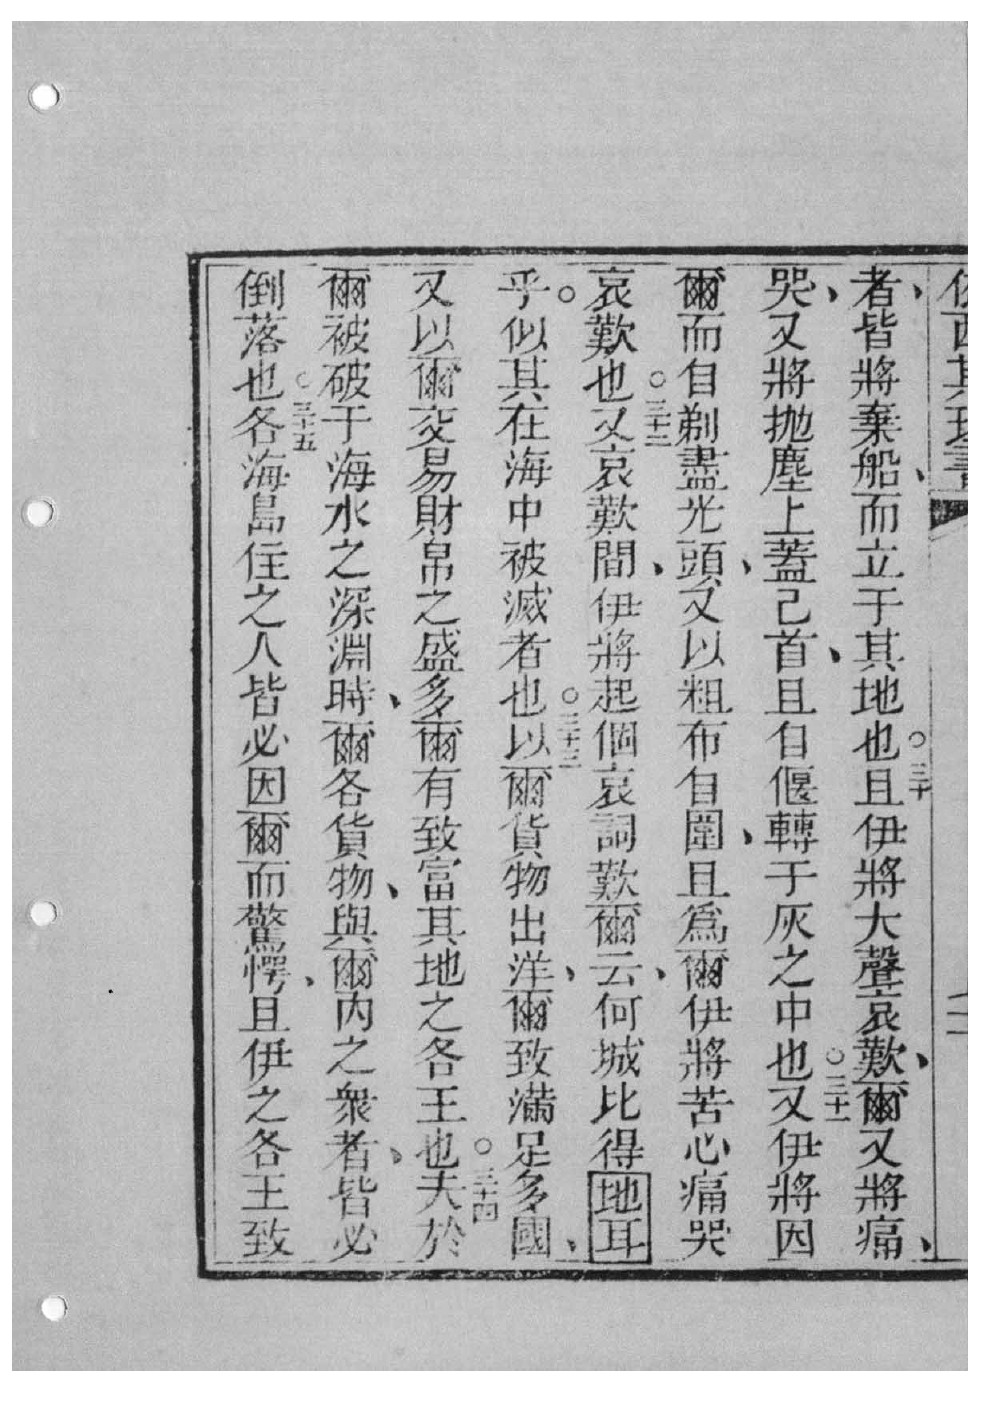 者、皆將棄船、而立于其地也○三十且伊將大聲哀歎、爾又將痛、
哭、又將抛塵上蓋己首、且自偃轉于灰之中也○三十一又伊將因
爾而自剃盡光頭、又以粗布自圍、且爲爾伊將苦心痛哭
哀歎也○三十二又哀歎間、伊將起個哀詞歎爾云、何城比得地耳
乎。似其在海中被滅者也○三十三以爾貨物出洋、爾致滿足多國、
又以爾交易財帛之盛多爾有致富其地之各王也○三十四夫於
爾被破于海水之深淵時、爾各貨物、與爾内之衆者、皆必
倒落也○三十五各海島住之人皆必因爾而驚愕、且伊之各王致